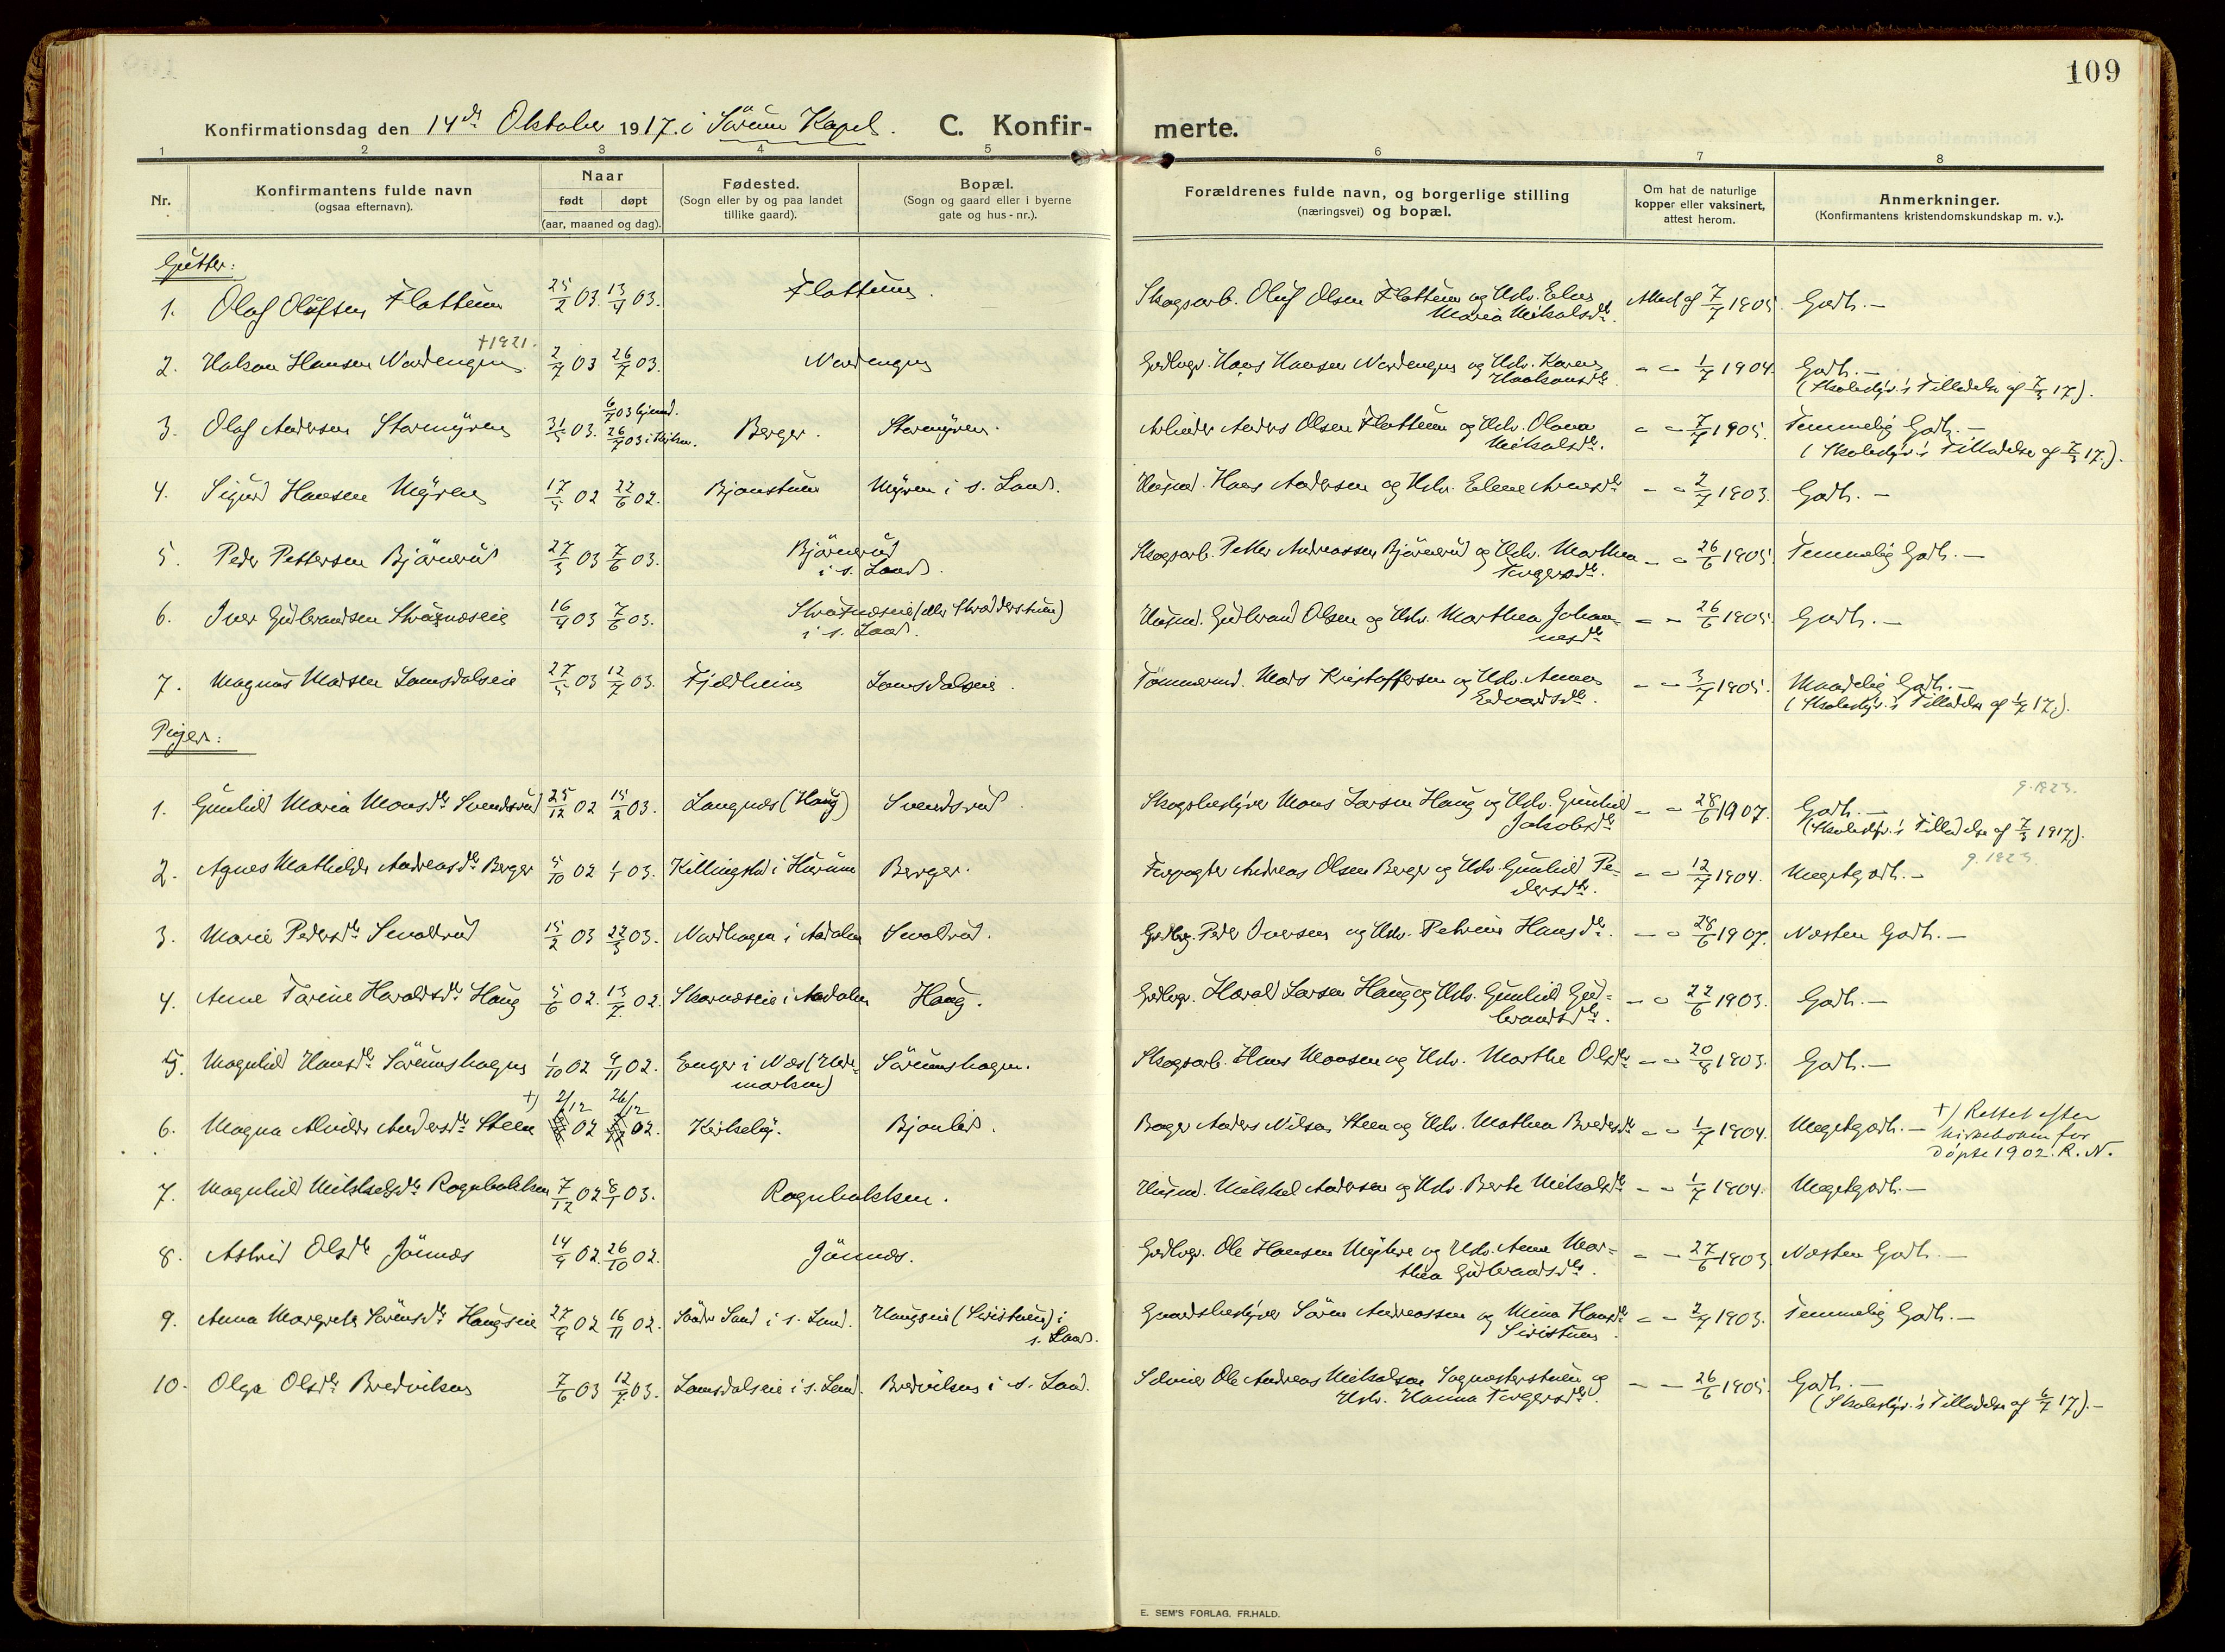 109
Konfirmationsdag den 14de Oktober 1917. i Sörum Kapel. C. Konfir- merte.
1 2 3 4 5 6 7 8
Nr.
Konfirmantens fulde navn
(ogsaa efternavn).
Naar
født døpt
(aar, maaned og dag).
Fødested.
(Sogn eller by og paa landet
tillike gaard).
Bopæl.
(Sogn og gaard eller i byerne
gate og hus-nr.).
Forældrenes fulde navn, og borgerlige stilling
(næringsvei) og bopæl.
Om hat de naturlige
kopper eller vaksinert,
attest herom.
Anmerkninger.
(Konfirmantens kristendomskundskap m. v.).
Gutter:
1. Olaf Olufsen Flattum 25/2 03. 13/4 03. Flattum. Skogsarb. Oluf Olsen Flattum og Hstr. Elen
Maria Mikalsdr. Attest af 7/7 1905. Godt. —
†1921.
2. Hakon Hansen Nordengen 2/4 03 26/7 03. Nordengen Gdbr. Hans Hansen Nordengen og Hstr. Karen
Haakonsdr. - - 1/7 1904. Godt. —
(Skolestyr.'s Tilladelse af 7/3 17).
3. Olaf Andersen Stormyren 31/5 03. 6/7 03 hjemd.
26/7 03 i Kirken. Berger. Stormyren. Arbeider Anders Olsen Flattum og Hstr. Olava
Mikalsdr. - - 7/7 1905. Temmelig Godt. —
(Skolestyr.'s Tilladelse af 7/3 17.).
4. Sigurd Hansen Myren 17/5 02 22/6 02. Bjonstuen Myren i s. Land. Husmd. Hans Andersen og Hstr. Elene Arnesdr - - 2/7 1903. Godt. —
5. Peder Pettersen Björnerud 27/3 03 7/6 03. Björnerud
i s. Land. Skogsarb. Petter Andreassen Björnerud og Hstr. Marthea
Torgersdr. - - 26/6 1905. Temmelig Godt. —
6. Iver Gudbrandsen Skrugnæseie 16/4 03 7/6 03. (eller Skrædderstuen)
i s. Land. Husmd. Gudbrand Olsen og Hstr. Marthea Johan-
nesdr - - 26/6 1905. Godt. —
7. Magnus Madsen Lomsdalseie 27/5 03 12/7 03. Fjeldheim Lomsdalseie. Tömmermd. Mads Kristoffersen og Hstr. Anna
Edvardsdr. - - 3/7 1905. Maadelig Godt. —
(Skolestyr.'s Tilladelse af 17).
Piger:
g. 1823.
1. Gunhild Maria Monsdr Svendsrud 25/12 02 15/2 03. Langnæs (Haug) Svendsrud. Skogbestyrer Mons Larsen Haug og Hstr. Gunhild
Jakobsdr - - 28/6 1907. Godt. —
(Skolestyr.'s Tilladelse af 7/3 1917).
g. 1823.
2. Agnes Mathilde Andreasdr Berger 5/10 02 1/1 03. Killingstad i Hurum Berger. Forpagter Andreas Olsen Berger og Hstr. Gunhild Pe-
dersdr. - - 12/7 1904. Meget godt. —
3. Marie Pedersdr Smoldrud 15/2 03 22/3 03. Nordhagen i Aadalen Smoldrud. Gdbr. Peder Iversen og Hstr. Petrine Hansdr. - - 28/6 1907. Næsten Godt. —
4. Anne Tarine Haraldsdr Haug 5/6 02. 13/7 02. Skarnæseie i Aadalen Haug. Gdbr. Harald Larsen Haug og Hstr. Gunhild Gud-
brandsdr. - - 22/6 1903. Godt. —
5. Magnhild Hansdr Sörumshagen 1/10 02 9/11 02. Enger i Næs (Hede-
marken) Sörumshagen. Skogsarb. Hans Monsen og Hstr. Marthe Olsdr - - 20/8 1903. Godt. —
+) 2/12 26/12
6. Magna Alvilde Andersdr Steen 02 02. Kirkeby. Bjonlid. Bager Anders Nilsen Steen og Hstr. Mathea Bredesdr - - 1/7 1904. Meget godt. — +) Rettet efter
kirkeboken for
döpte 1902. R. N.
7. Magnhild Mikkelsdr Rognbakken 7/12 02 8/1 03. Rognbakken. Husmd. Mikkel Andersen og Hstr. Berte Mikalsdr - - 1/7 1904. Meget godt. —
8. Astrid Olsdr Jönnæs 14/9 02. 26/10 02. Jönnæs. Gdbr. Ole Hansen Myhre og Hstr. Anne Mar-
thea Gudbrandsdr. - - 27/6 1903 Næsten Godt. —
9. Anna Margrete Sörensdr Haugseie 27/9 02 16/11 02. Söndre Sand i s. Land. Haugseie (Siristuen) i
s. Land. Gaardsbestyrer Sören Andreassen og Mina Hansdr
Siristuen. - - 2/7 1903. Temmelig Godt. —
10. Olga Olsdr Bredviken 7/6 03 12/7 03. Lomsdalseie i s. Land. Bredviken i s. Land. Ole Andreas Mikalsen og
Hstr. Hanna Torgersdr. - - 26/6 1905. Godt. —
(Skolestyr.'s Tilladelse af 17). —
E. SEM'S FORLAG, FR.HALD.